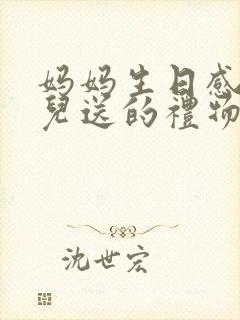 妈妈生日感
兒送的禮物
沈世宏